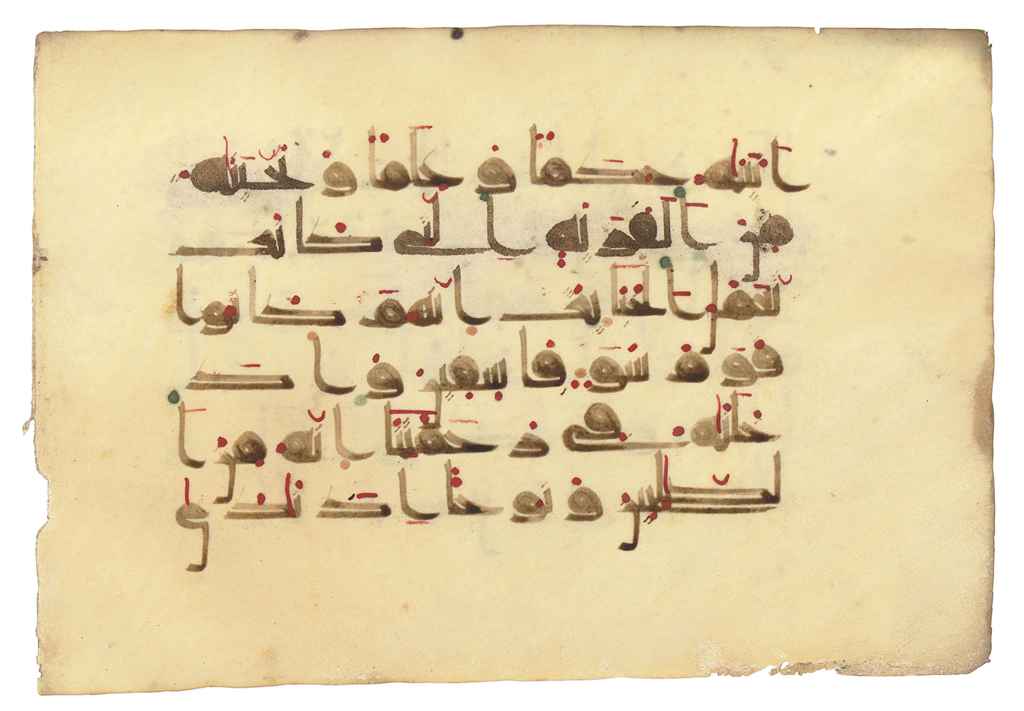 اتينه حكما و علما و نجينه
من القرية التي كانت
تعمل الخبئث انهم كانوا
قوم سو فسقين و اد
خلنه في رحمتنا انه من ا
لصلحين و نوحا اذ نادى